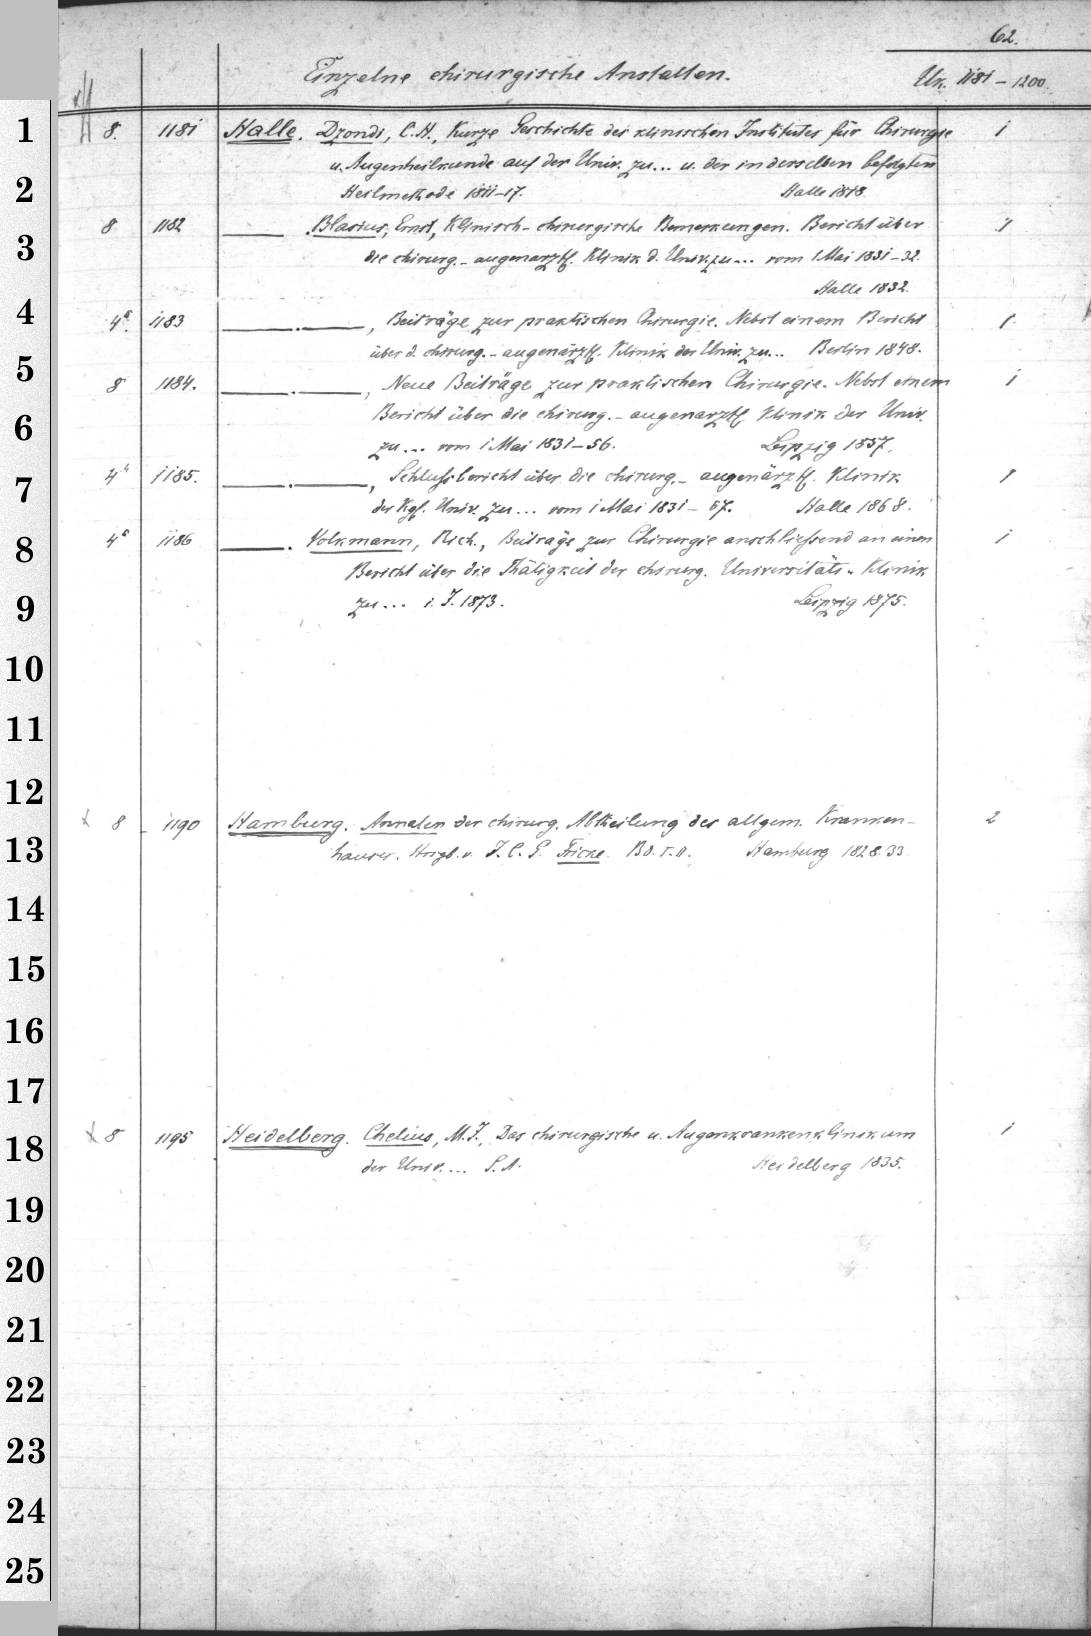 62.
Einzelne chirurgische Anstalten. Uk. 1181 – 1200.
1 8. 1181 Halle. Dzondi, C. H., Kurze Geschichte des klinischen Institutes für Chirurgie 1
u. Augenheilkunde auf der Univ. zu... u. der in derselben befolgten
2 Heilmethode 1811–17. Halle 1818.
8 1182 ——— Blasius, Ernst, Klinisch-chirurgische Bemerkungen. Bericht über 1
3 die chirurg.-augenarztl. Klinik d. Univ. zu... vom 1 Mai 1831–32.
Halle 1832.
4 4° 1183 ———.———, Beiträge zur praktischen Chirurgie. Nebst einem Bericht 1
5 über d. chirurg.-augenärztl. Klinik der Univ. zu... Berlin 1848.
8 1184. ———.———, Neue Beiträge zur praktischen Chirurgie. Nebst einem 1
6 Bericht über die chirurg.-augenarztl. Klinik der Univ.
zu... vom 1 Mai 1831–56. Leipzig 1857.
7 4° 1185. ———.———, Schlussbericht über die chirurg.-augenärztl. Klinik 1
der Kgl. Univ. zu... vom 1 Mai 1831–67. Halle 1868.
8 4° 1186 ———. Volkmann, Rich., Beitrage zur Chirurgie anschliessend an einen 1
Bericht über die Thätigkeit der chirurg. Universitäts-Klinik
9 zu... i. J. 1873. Leipzig 1875.
10
11
12
x 8 1190 Hamburg. Annalen der chirurg. Abtheilung des allgem. Kranken- 2
13 hauses. Hrsgb. v. J. C. G. Fricke. Bd. I. II. Hamburg 1828. 33
14
15
16
17
x 8 1195 Heidelberg. Chelius, M. J., Das chirurgische u. Augenkrankenklinikum 1
18 der Univ.... S. A. Heidelberg 1835.
19
20
21
22
23
24
25